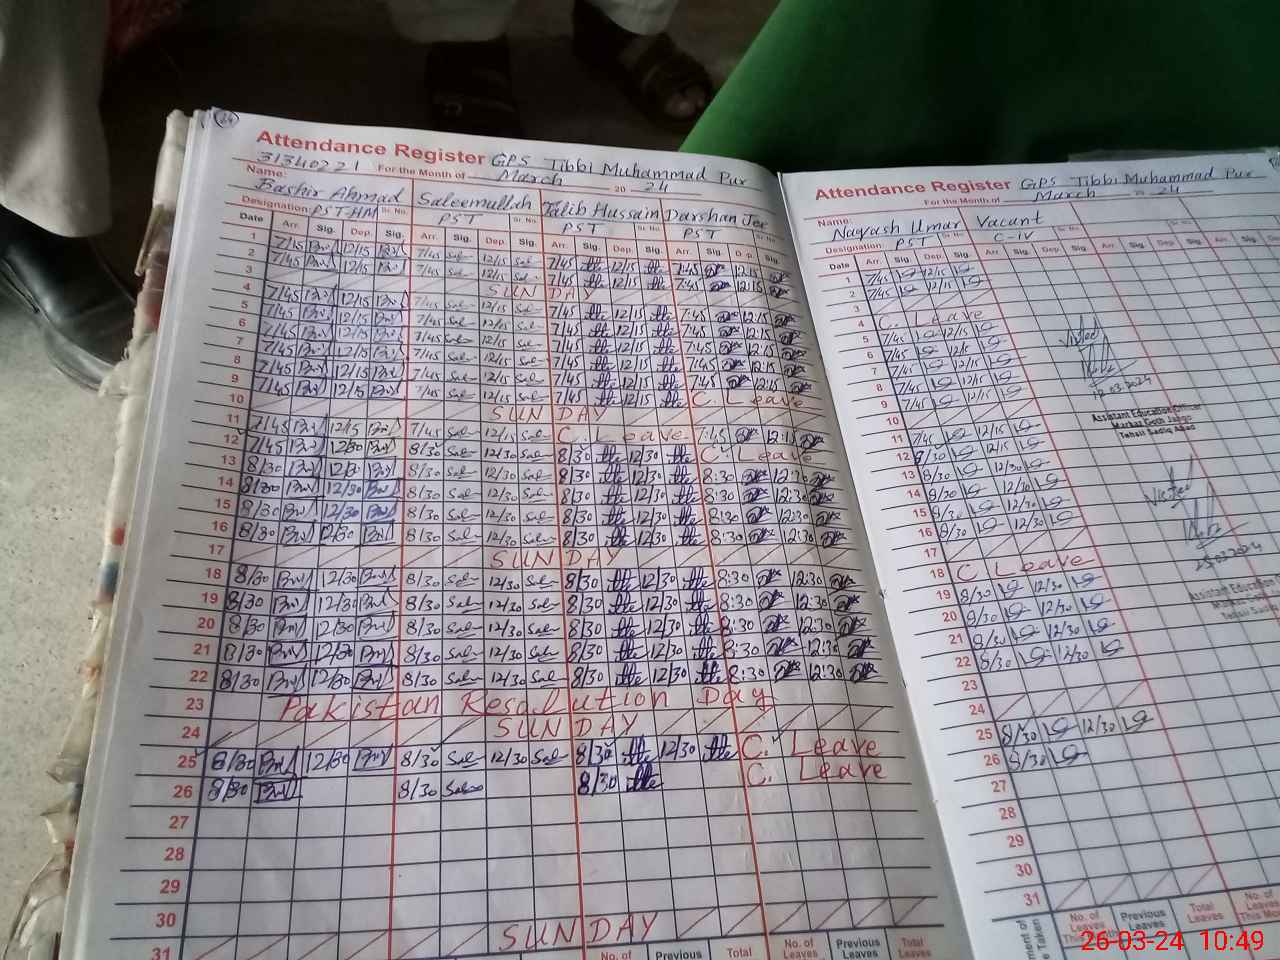 24
Attendance Register GPS Tibbi Muhammad Pur
31340221 For the Month of March 20 24
Name: Bashir Ahmad Saleemullah Talib Hussain Darshan Jee
Designation: PST-HM Sr. No. PST Sr. No. PST Sr. No. PST Sr. No.
Date Arr. Sig. Dep. Sig. Arr. Sig. Dep. Sig. Arr. Sig. Dep. Sig. Arr. Sig. Dep. Sig.
1 7/45 12/15 7/45 12/15 7/45 12/15 7:45 12:15
2 7/45 12/15 7/45 12/15 7/45 12/15 7:45 12:15
3 SUNDAY
4 7/45 12/15 7/45 12/15 7/45 12/15 7:45 12:15
5 7/45 12/15 7/45 12/15 7/45 12/15 7:45 12:15
6 7/45 12/15 7/45 12/15 7/45 12/15 7:45 12:15
7 7/45 12/15 7/45 12/15 7/45 12/15 7:45 12:15
8 7/45 12/15 7/45 12/15 7/45 12/15 7:45 12:15
9 7/45 12/15 7/45 12/15 7/45 12/15 C. Leave
10 SUNDAY
11 7/45 12/15 7/45 12/15 C. Leave 7:45 12:15
12 7/45 12/30 8/30 12/30 8/30 12/30 C. Leave
13 8/30 12/30 8/30 12/30 8/30 12/30 8:30 12:30
14 8/30 12/30 8/30 12/30 8/30 12/30 8:30 12:30
15 8/30 12/30 8/30 12/30 8/30 12/30 8:30 12:30
16 8/30 12/30 8/30 12/30 8/30 12/30 8:30 12:30
17 SUNDAY
18 8/30 12/30 8/30 12/30 8/30 12/30 8:30 12:30
19 8/30 12/30 8/30 12/30 8/30 12/30 8:30 12:30
20 8/30 12/30 8/30 12/30 8/30 12/30 8:30 12:30
21 8/30 12/30 8/30 12/30 8/30 12/30 8:30 12:30
22 8/30 12/30 8/30 12/30 8/30 12/30 8:30 12:30
23 Pakistan Resolution Day
24 SUNDAY
25 8/30 12/30 8/30 12/30 8/30 12/30 C. Leave
26 8/30 8/30 8/30 C. Leave
27
28
29
30
31 SUNDAY
No. of Leaves Previous Leaves Total No. of Leaves Previous Leaves Total Leaves
Attendance Register GPS Tibbi Muhammad Pur
For the Month of March 24
Name: Nayash Umar Vacant
Designation: PST Sr. No. C-IV Sr. No.
Date Arr. Sig. Dep. Sig. Arr. Sig. Dep. Sig. Arr. Sig. Dep. Sig. Arr. Sig.
1 7/45 12/15
2 7/45 12/15
3
4 C. Leave
5 7/45 12/15
6 7/45 12/15
7 7/45 12/15
8 7/45 12/15
9 7/45 12/15
10
11 7/45 12/15
12 8/30 12/15
13 8/30 12/30
14 8/30 12/30
15 8/30 12/30
16 8/30 12/30
17
18 C Leave
19 8/30 12/30
20 8/30 12/30
21 8/30 12/30
22 8/30 12/30
23
24
25 8/30 12/30
26 8/30
27
28
29
30
31
Visited
12.03.2024
Assistant Education Officer
Markaz Goth Jango
Tehsil Sadiq Abad
Visited
25.03.2024
Assistant Education
Tehsil Sadiq
No. of Leaves This Month Previous Leaves Total Leaves No. of Leaves This Month
26-03-24 10:49